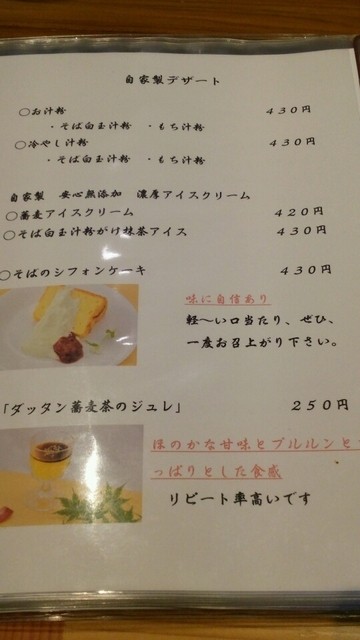 自家製デザート
○お汁粉 430円
・そば白玉汁粉 ・もち汁粉
○冷やし汁粉 430円
・そば白玉汁粉 ・もち汁粉
自家製 安心無添加 濃厚アイスクリーム
○蕎麦アイスクリーム 420円
○そば白玉汁粉がけ抹茶アイス 430円
○そばのシフォンケーキ 430円
味に自信あり
軽〜い口当たり、ぜひ、
一度お召上がり下さい。
「ダッタン蕎麦茶のジュレ」 250円
ほのかな甘味とプルルンと
っぱりとした食感
リピート率高いです